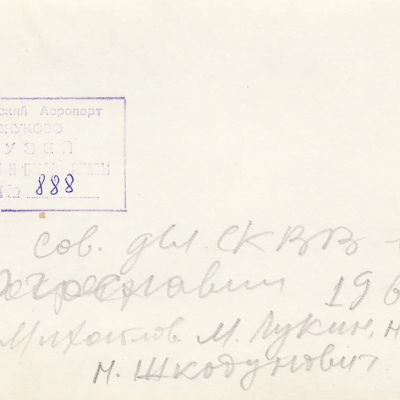 ский Аэропорт
ВНУКОВО
УЗЕЙ
№ 888
сов. дел. СКВВ -
Югославии 196
Михайлов М. Лукин, Н
Н. Шкодунович